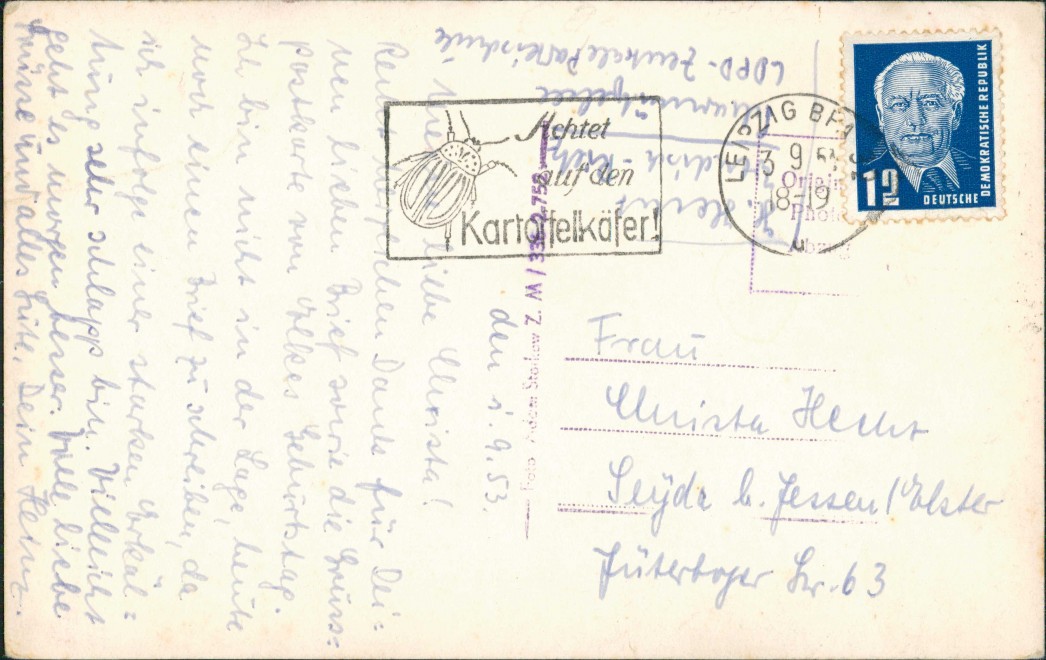 LDPD-Zentrale Parteischule
den 1.9.53.
Meine liebe Christa!
Recht herzlichen Dank für Dei=
nen lieben Brief sowie die Gruss=
postkarte von Elkes Geburtstag.
Ich bin nicht in der Lage, heute
noch einen Brief zu schreiben, da
ich infolge einer starken Erkäl=
tung sehr schlapp bin. Vielleicht
geht es morgen besser. Viele liebe
Grüsse und alles Gute. Dein Heinz.
Achtet
auf den
Kartoffelkäfer!
LEIPZIG
3 9 53
18-19
12
DEUTSCHE
DEMOKRATISCHE REPUBLIK
Z. M/
Frau
Christa Hecht
Seyda b. Jessen/Elster
Jüterboger Str. 63